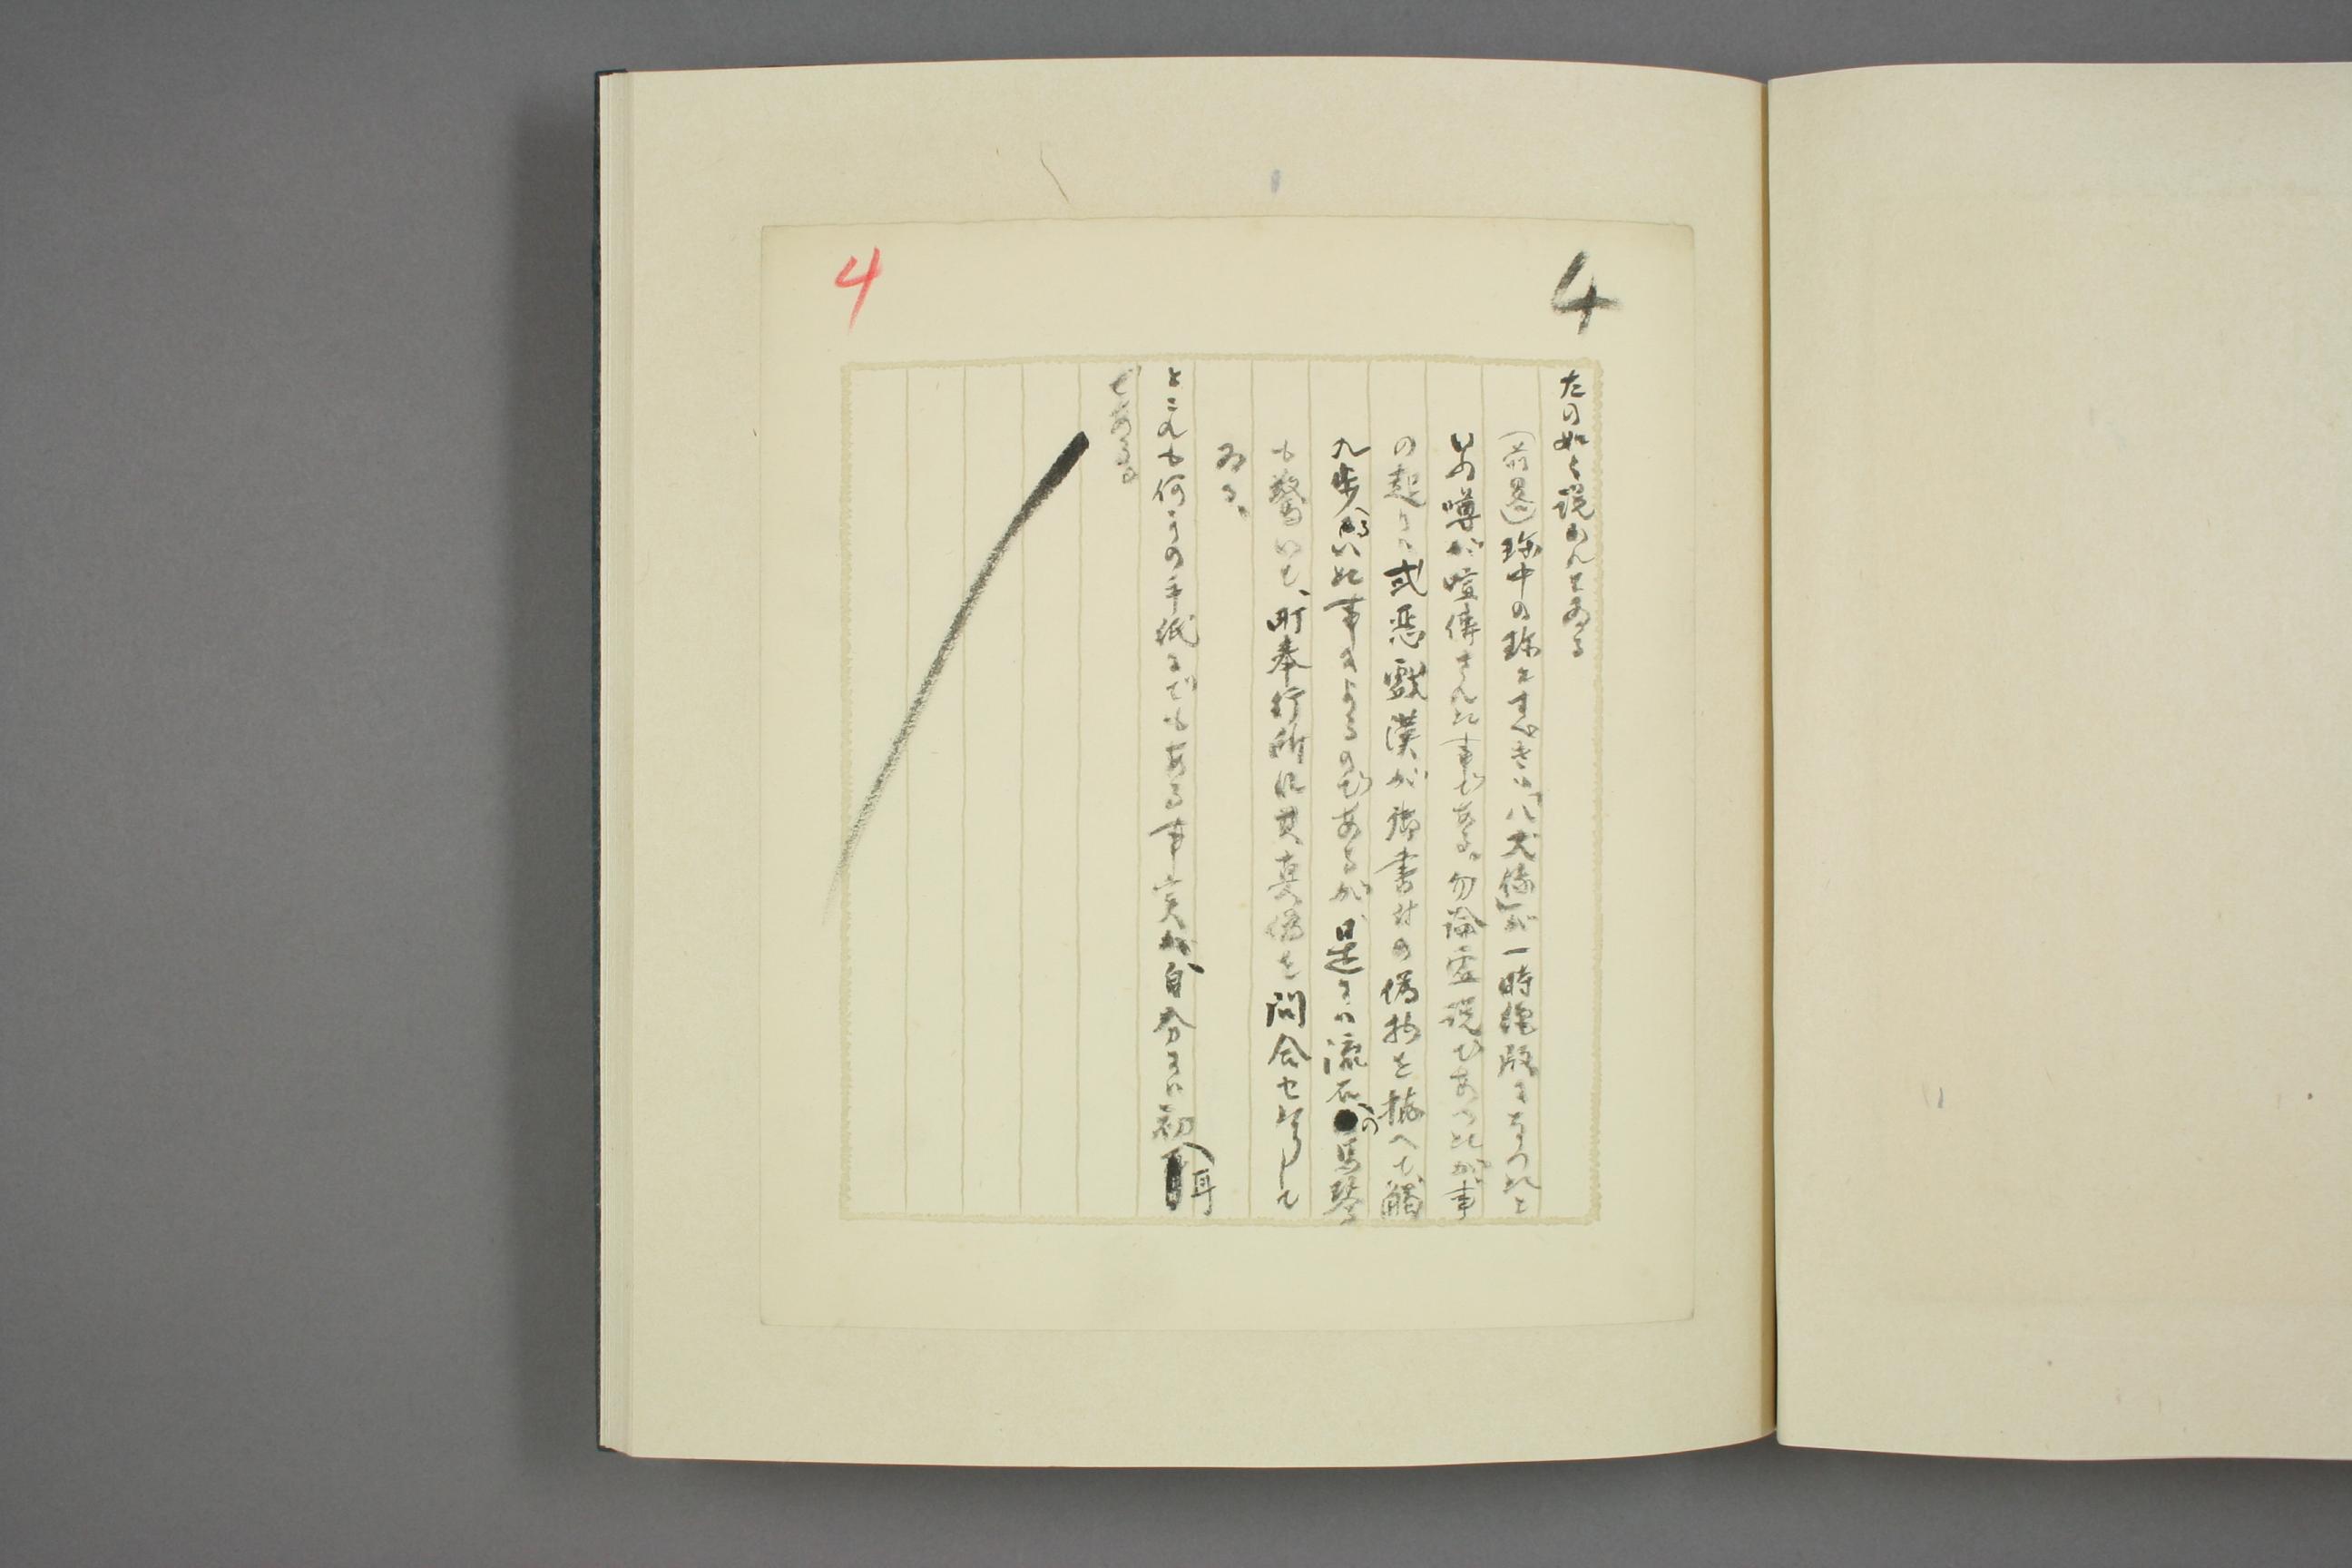 4
4
左の如く説かれてゐる
(前畧)珍中の珍とすべきは「八犬傳」が一時絶版になつたと
いふ噂が喧傳された事である。勿論虚説であつたが事
の起りは或悪戯漢が御書付の偽物を拵へて觸
れ歩るいた事によるのであるが、是には流石の馬琴
も驚いて、町奉行所に其真偽を問合せなどして
ゐる。
とこれも何かの手紙にでもある事実が、自分には初耳
である。